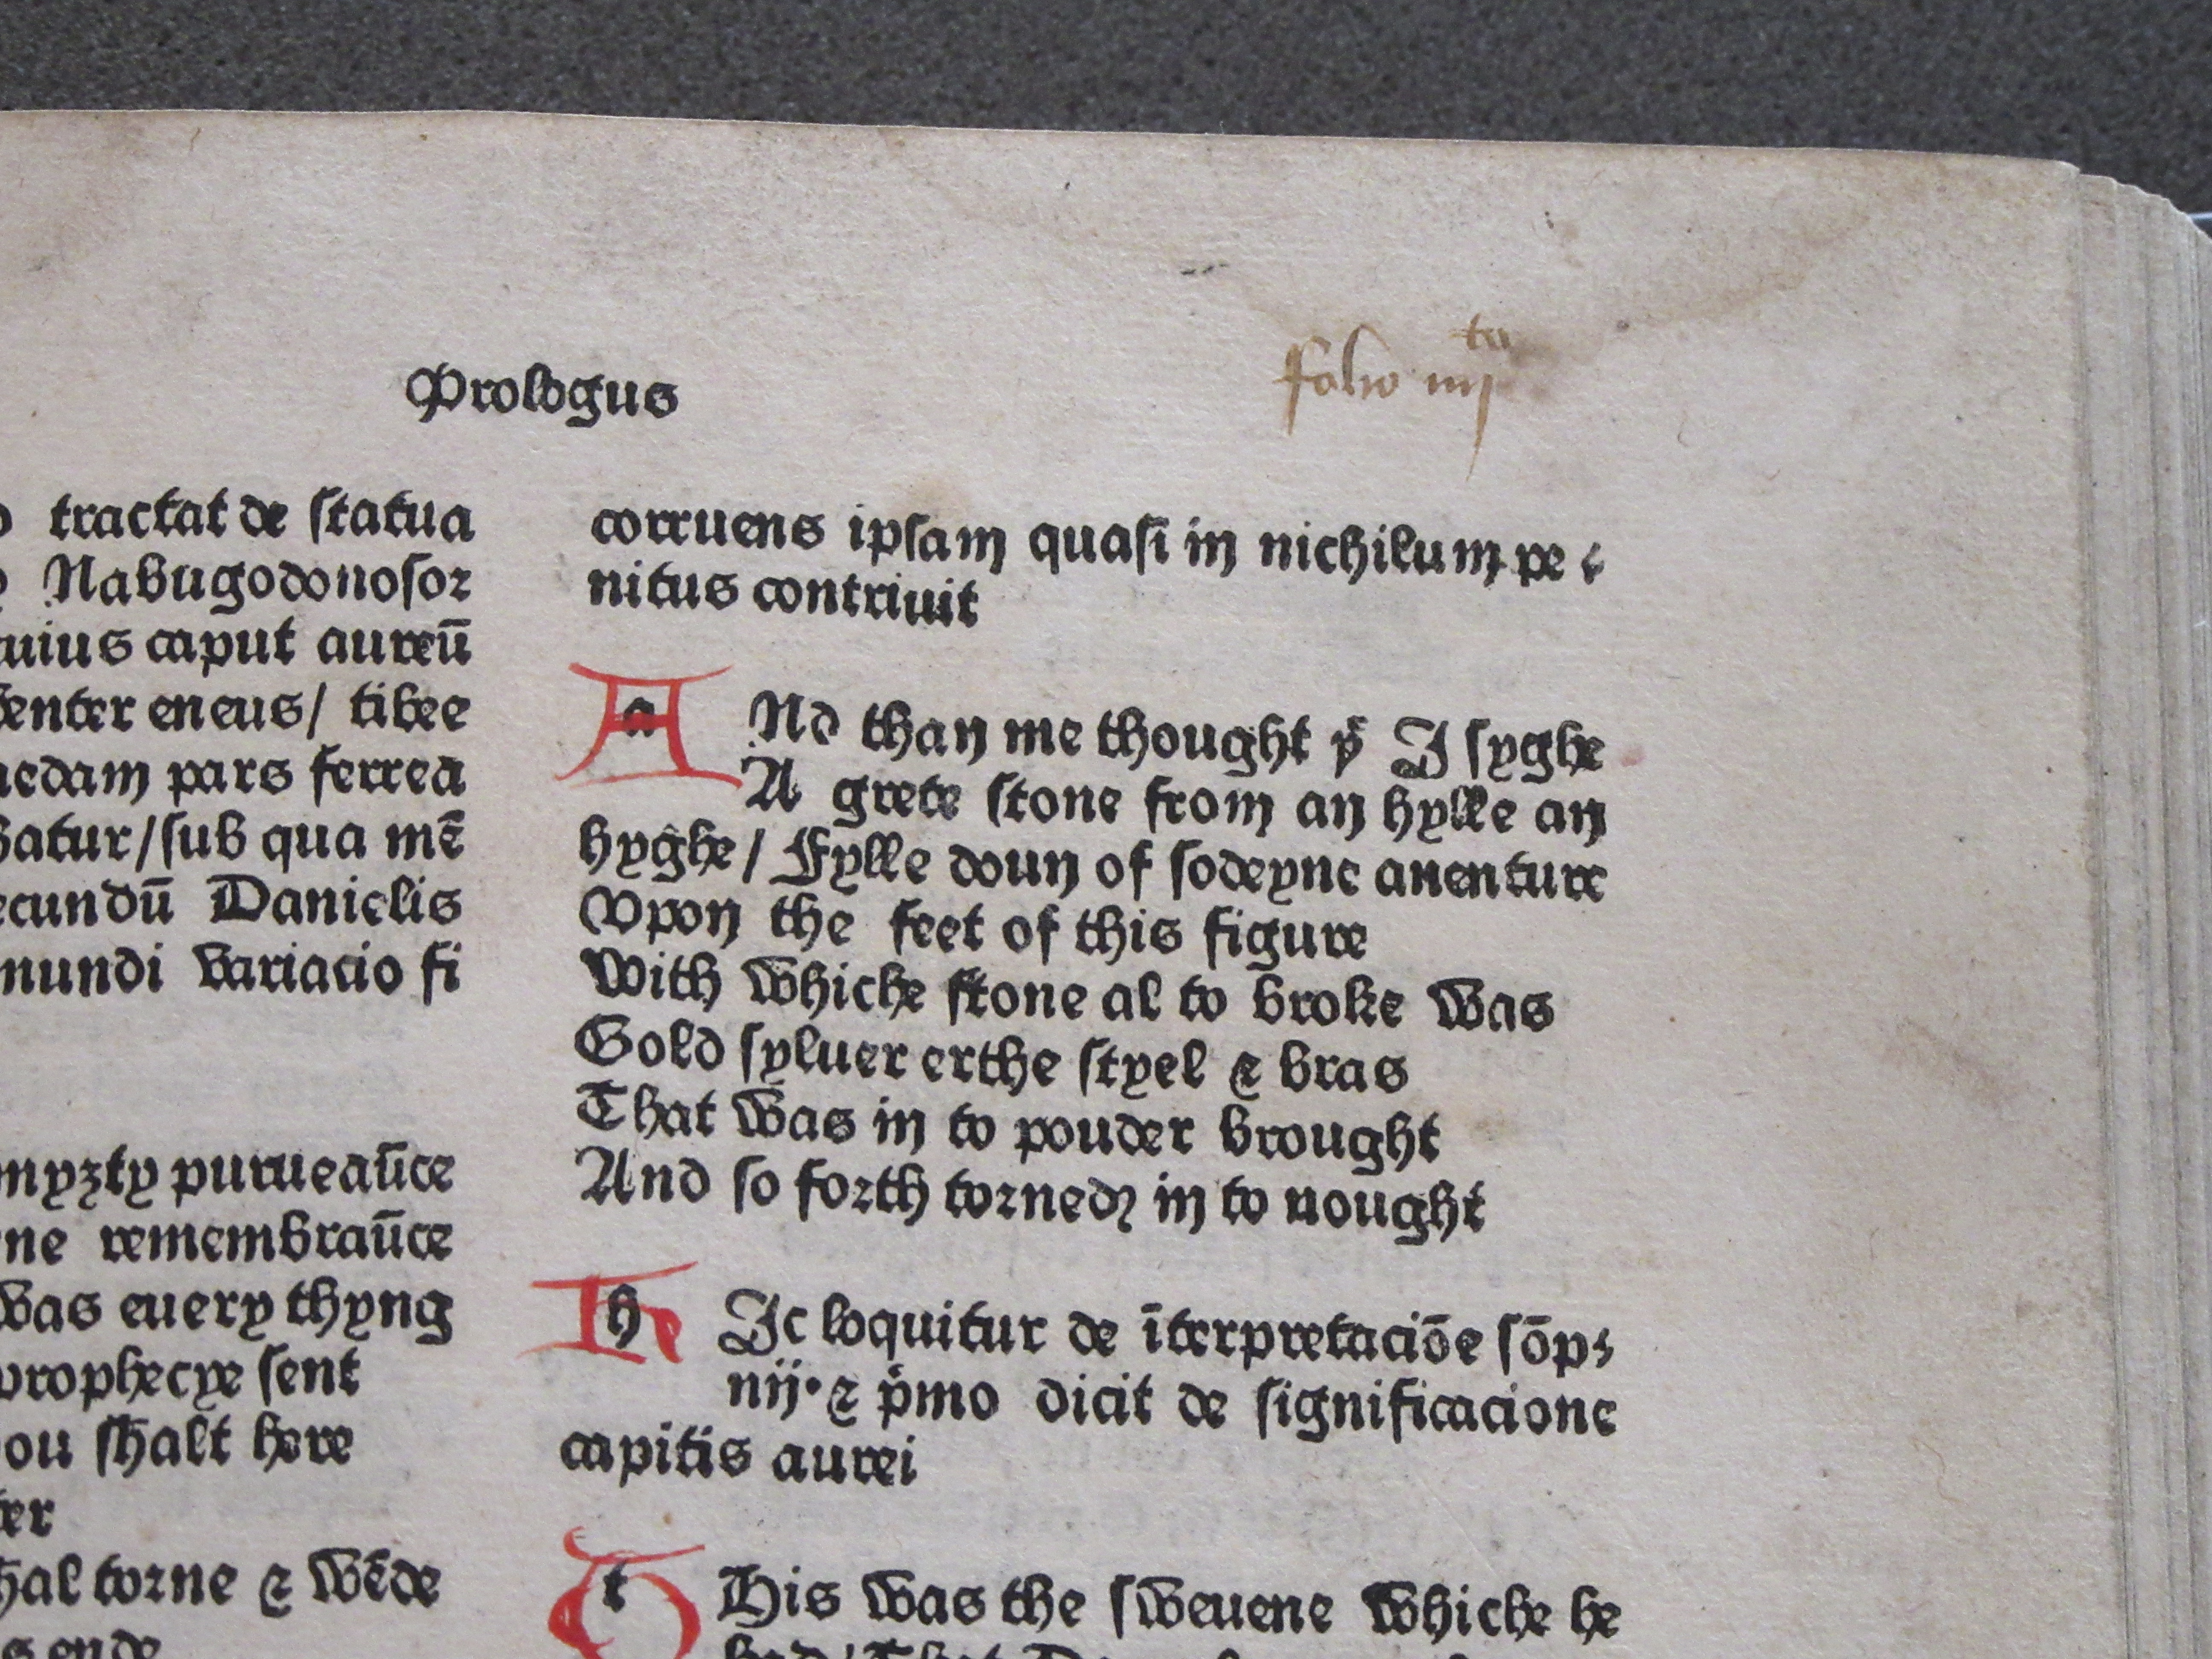 Prologus
folio iiijto
tractat de ſtatua
Nabugodonoſor
caput aureū
eneus/ tibee
pars ferrea
ſub qua mē
Danielis
mundi variacio fi
purueaūce
remembraūce
euery thyng
prophecye ſent
ſhalt here
torne & wēde
ende
corruens ipſam quaſi in nichilum pe
nitus contriuit
a Nd than me thought yͭ I ſyghe
A grete ſtone from an hylle an
hyghe/ Fylle doun of ſodeyne auenture
Vpon the feet of this figure
With whiche ſtone al to broke was
Gold ſyluer erthe ſtyel & bras
That was in to pouder brought
And so forth torned in to nought
h Ic loquitur de īterpretaciōe ſōp
nij· & pͥmo dicit de ſignificacione
capitis aurei
t His was the ſweuene whiche he